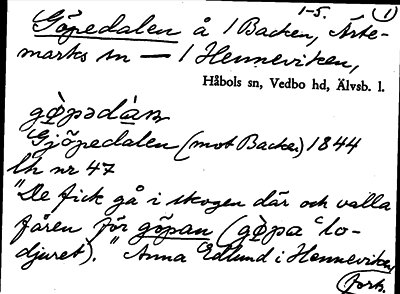 1-5. (1)
Göpedalen å 1 Backen, Ärte-
marks sn — 1 Henneviken,
Håbols sn, Vedbo hd, Älvsb. l.
Gjöpedalen (mot Backe.) 1844
lh nr 47
"De fick gå i skogen där och valla
fåren för göpan (gö̀pa "lo-
djuret)." Anna Edlund i Henneviken
(forts.